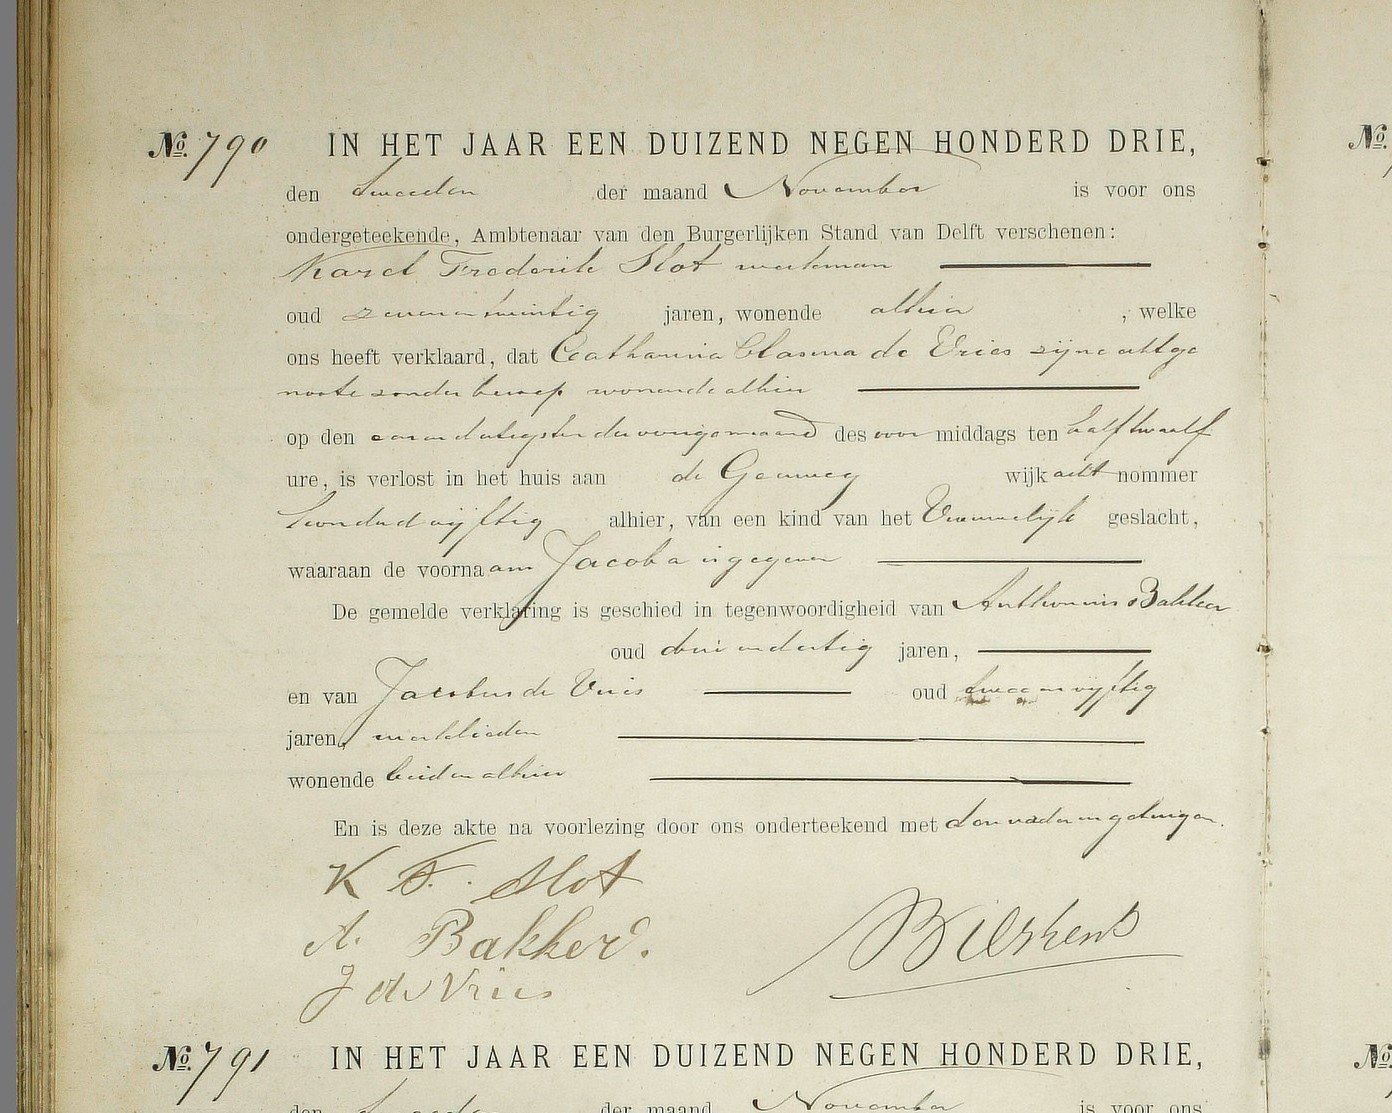 No. 790 IN HET JAAR EEN DUIZEND NEGEN HONDERD DRIE,
den tweeden der maand November is voor ons
ondergeteekende, Ambtenaar van den Burgerlijken Stand van Delft verschenen:
Karel Frederik Slot werkman
oud zevenentwintig jaren, wonende alhier, welke
ons heeft verklaard, dat Catharina Clasina de Vries zijne echtge
noote zonder beroep wonende alhier
op den eenendertigsten der vorige maand des voor middags ten half twaalf
ure, is verlost in het huis aan de Geerweg wijk acht nommer
honderd vijftig alhier, van een kind van het Vrouwelijk geslacht,
waaraan de voornaam Jacoba is gegeven
De gemelde verklaring is geschied in tegenwoordigheid van Anthonius Bakker
oud drie en dertig jaren,
en van Jacobus de Vries oud twee en vijftig
jaren, werklieden
wonende beiden alhier
En is deze akte na voorlezing door ons onderteekend met den vader en getuigen.
K F. Slot
A. Bakker.
J de Vries
No. 791 IN HET JAAR EEN DUIZEND NEGEN HONDERD DRIE,
den tweeden der maand November is voor ons
No.
No.